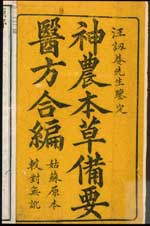 汪訒菴先生鑒定
神農本草備要
醫方合編
姑蘇原本
較對無訛